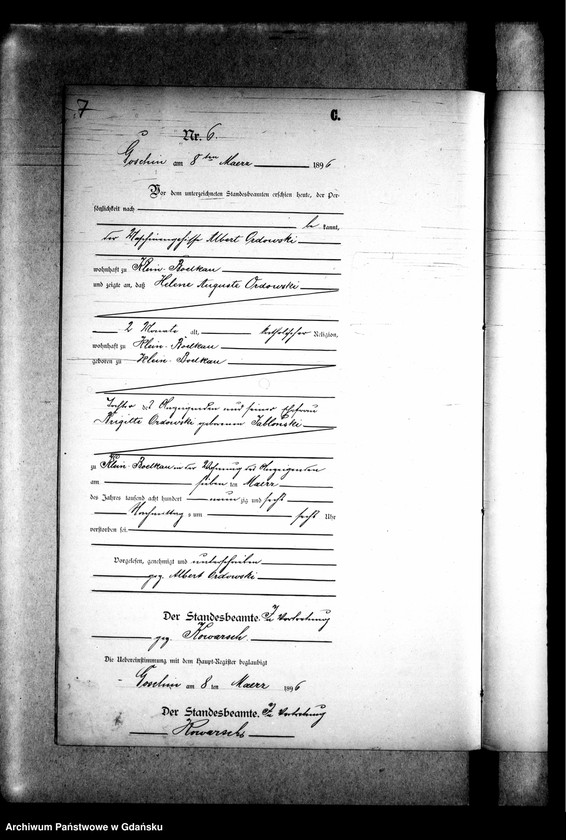 7
C.
Nr. 6.
Goschin am 8ten Maerz 1896
Vor dem unterzeichneten Standesbeamten erschien heute, der Per-
sönlichkeit nach
be kannt,
der Maschinengehilfe Albert Ordowski
wohnhaft zu Klein-Boelkau
und zeigte an, daß Helene Auguste Ordowski
2 Monate alt, katholischer Religion,
wohnhaft zu Klein-Boelkau
geboren zu Klein-Boelkau
Tochter des Anzeigenden und seiner Ehefrau
Brigitte Ordowski geborenen Jablonski
zu Klein-Boelkau in der Wohnung des Anzeigenden
am sieben ten Maerz
des Jahres tausend acht hundert neun zig und sechs
Nachmittag s um sechs Uhr
verstorben sei.
Vorgelesen, genehmigt und unterschrieben
gez. Albert Ordowski
Der Standesbeamte. In Vertretung
gez. Kowarsch.
Die Uebereinstimmung mit dem Haupt-Register beglaubigt
Goschin am 8 ten Maerz 1896
Der Standesbeamte. In Vertretung
Kowarsch
Archiwum Państwowe w Gdańsku